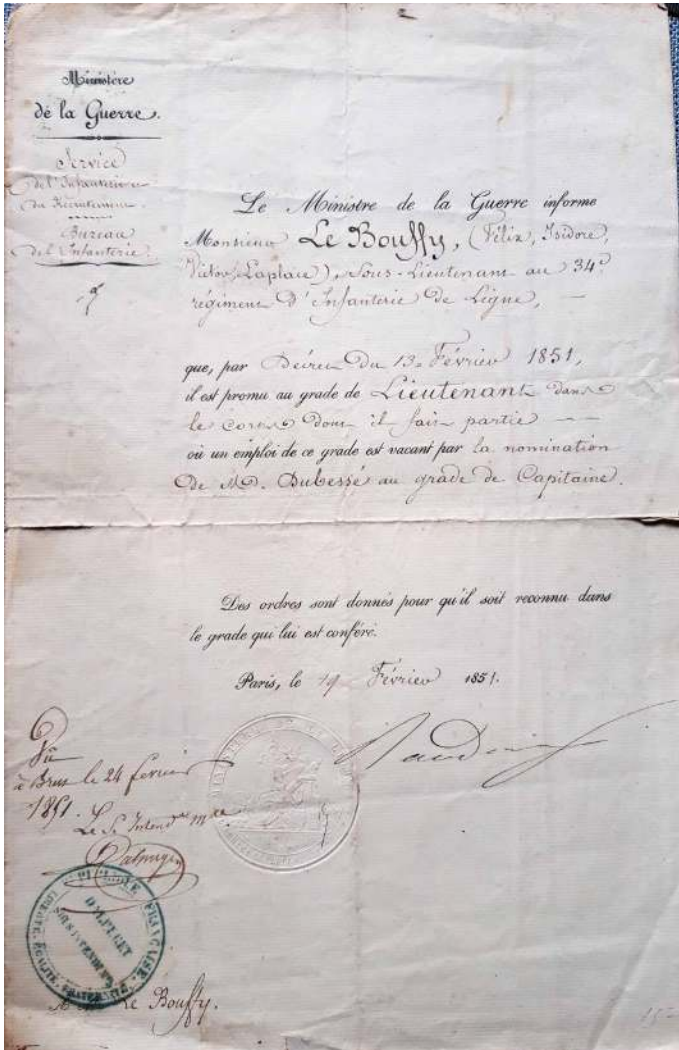 Ministère
de la Guerre.
Service
de l'Infanterie et
du Recrutement.
Bureau
de l'Infanterie.
Le Ministre de la Guerre informe
Monsieur Le Bouffy, (Félix, Isidore,
Victor, Laplace), Sous-Lieutenant au 34e
régiment d'Infanterie de Ligne, —
que, par Décret du 13 Février 1851,
il est promu au grade de Lieutenant dans
le corps dont il fait partie —
où un emploi de ce grade est vacant par la nomination
de M. Dubessé au grade de Capitaine.
Des ordres sont donnés pour qu'il soit reconnu dans
le grade qui lui est conféré.
Paris, le 19 Février 1851.
Vu
à le 24 fevrier
1851.
Le S. Intendt mre
RÉPUBLIQUE FRANÇAISE.
LIBERTÉ, ÉGALITÉ, FRATERNITÉ
SOUS INTENDANT
Le Bouffy.